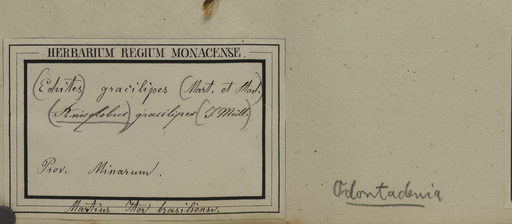 HERBARIUM REGIUM MONACENSE
(Echites) gracilipes (Mart. et Stad.)
gracilipes (J. Müll.)
Prov. Minarum.
Martius Iter brasiliense.
Odontadenia